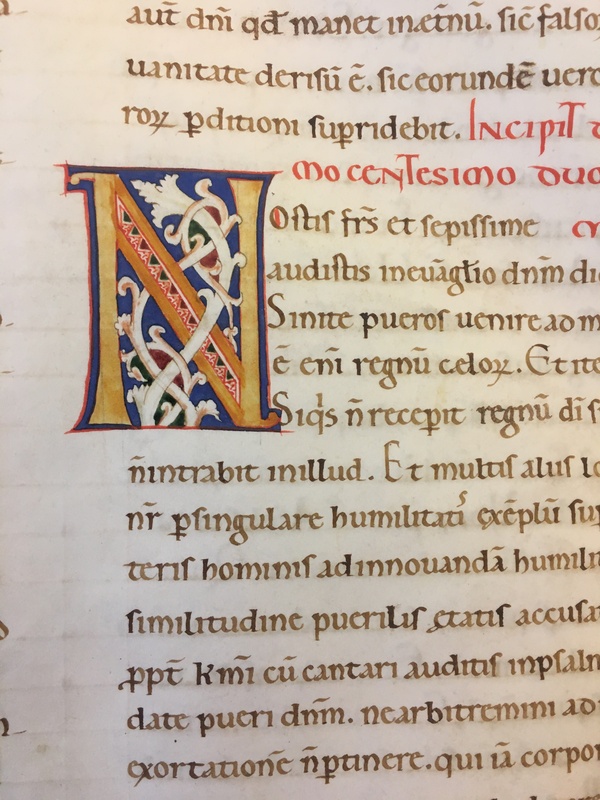 aut̄ dn̄i qd̄ manet inæt̄nū. sic̄ falso
uanitate derisū ē. sic eorundē uero
roꝝ ꝑditioni suꝑridebit. INCIPIT
MO CENTESIMO DUO
NOstis fr̄s et sepissime
audistis ineuāgl̄io dnm̄ di
Sinite pueros uenire ad m
ē eni̅ regnū celoꝝ. Et ite
Siqͥs n̄ receꝑit regnū di̅ s
n̄intrabit inillud. Et multis aliis lo
nr̄ ꝑsingulare humilitatiˢ exēplū su
teris hominis adinnouandā humili
similitudine puerilis ętatis accusa
ꝓpt̄ kmi̅ cū cantari auditis inpsalm
date pueri dnm̄. nearbitremini ad
exortationē n̄ꝑtinere. qui iā corpor